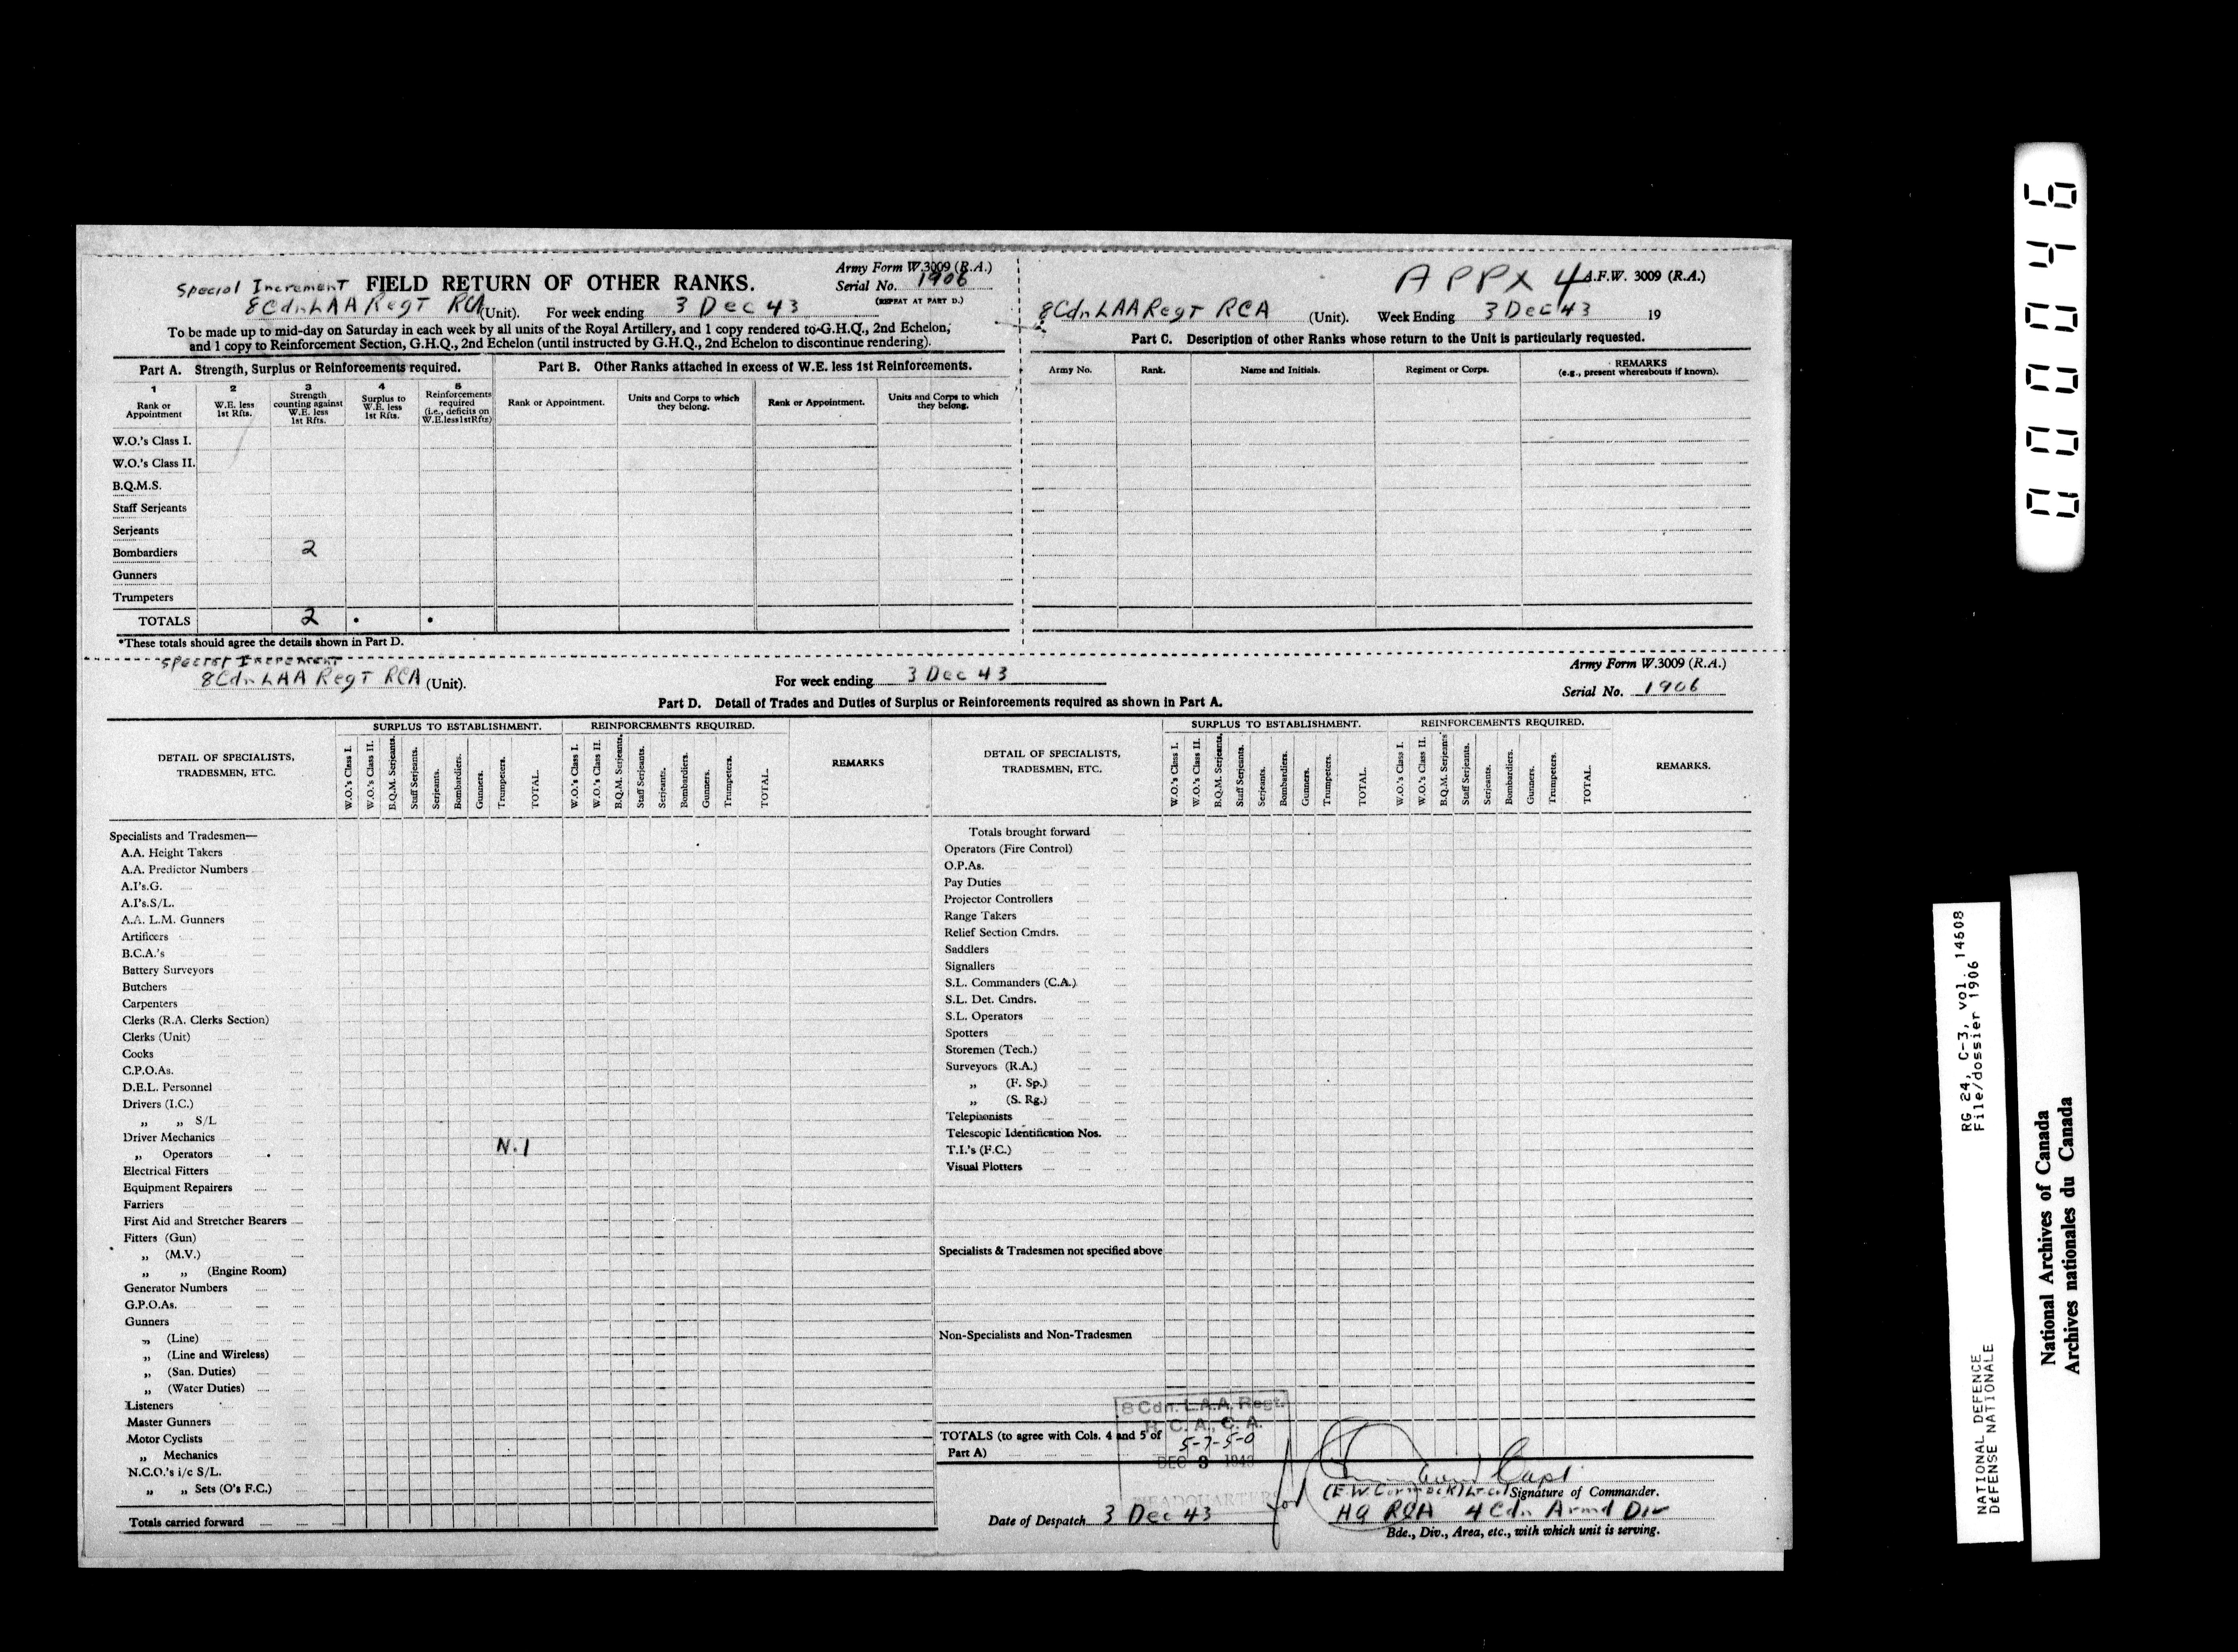 Special Increment FIELD RETURN OF OTHER RANKS.
Army Form W.3009 (R.A.)
Serial No. 1906
(REPEAT AT PART D.)
8 Cdn LAA Regt RCA (Unit). For week ending 3 Dec 43
To be made up to mid-day on Saturday in each week by all units of the Royal Artillery, and 1 copy rendered to G.H.Q., 2nd Echelon,
and 1 copy to Reinforcement Section, G.H.Q., 2nd Echelon (until instructed by G.H.Q., 2nd Echelon to discontinue rendering).
Part A. Strength, Surplus or Reinforcements required.
1 Rank or Appointment
2 W.E. less 1st Rfts.
3 Strength counting against W.E. less 1st Rfts.
4 Surplus to W.E. less 1st Rfts.
5 Reinforcements required (i.e., deficits on W.E. less 1st Rfts)
W.O.'s Class I.
W.O.'s Class II.
B.Q.M.S.
Staff Serjeants
Serjeants
Bombardiers 2
Gunners
Trumpeters
TOTALS 2 • •
*These totals should agree the details shown in Part D.
Part B. Other Ranks attached in excess of W.E. less 1st Reinforcements.
Rank or Appointment. Units and Corps to which they belong. Rank or Appointment. Units and Corps to which they belong.
APPX 4 A.F.W. 3009 (R.A.)
8 Cdn LAA Regt RCA (Unit). Week Ending 3 Dec 43 19
Part C. Description of other Ranks whose return to the Unit is particularly requested.
Army No. Rank. Name and Initials. Regiment or Corps. REMARKS (e.g., present whereabouts if known).
Special Increment
8 Cdn LAA Regt RCA (Unit). For week ending 3 Dec 43
Army Form W.3009 (R.A.)
Serial No. 1906
Part D. Detail of Trades and Duties of Surplus or Reinforcements required as shown in Part A.
DETAIL OF SPECIALISTS, TRADESMEN, ETC.
SURPLUS TO ESTABLISHMENT.
W.O.'s Class I. W.O.'s Class II. B.Q.M. Serjeants. Staff Serjeants. Serjeants. Bombardiers. Gunners. Trumpeters. TOTAL.
REINFORCEMENTS REQUIRED.
W.O.'s Class I. W.O.'s Class II. B.Q.M. Serjeants. Staff Serjeants. Serjeants. Bombardiers. Gunners. Trumpeters. TOTAL.
REMARKS
Specialists and Tradesmen—
A.A. Height Takers
A.A. Predictor Numbers
A.I's.G.
A.I's.S/L.
A.A. L.M. Gunners
Artificers
B.C.A.'s
Battery Surveyors
Butchers
Carpenters
Clerks (R.A. Clerks Section)
Clerks (Unit)
Cooks
C.P.O.As.
D.E.L. Personnel
Drivers (I.C.)
„ „ S/L
Driver Mechanics
„ Operators N.I
Electrical Fitters
Equipment Repairers
Farriers
First Aid and Stretcher Bearers
Fitters (Gun)
„ (M.V.)
„ „ (Engine Room)
Generator Numbers
G.P.O.As.
Gunners
„ (Line)
„ (Line and Wireless)
„ (San. Duties)
„ (Water Duties)
Listeners
Master Gunners
Motor Cyclists
„ Mechanics
N.C.O.'s i/c S/L.
„ „ Sets (O's F.C.)
Totals carried forward
DETAIL OF SPECIALISTS, TRADESMEN, ETC.
SURPLUS TO ESTABLISHMENT.
W.O.'s Class I. W.O.'s Class II. B.Q.M. Serjeants. Staff Serjeants. Serjeants. Bombardiers. Gunners. Trumpeters. TOTAL.
REINFORCEMENTS REQUIRED.
W.O.'s Class I. W.O.'s Class II. B.Q.M. Serjeants Staff Serjeants. Serjeants. Bombardiers. Gunners. Trumpeters. TOTAL.
REMARKS.
Totals brought forward
Operators (Fire Control)
O.P.As.
Pay Duties
Projector Controllers
Range Takers
Relief Section Cmdrs.
Saddlers
Signallers
S.L. Commanders (C.A.)
S.L. Det. Cmdrs.
S.L. Operators
Spotters
Storemen (Tech.)
Surveyors (R.A.)
„ (F. Sp.)
„ (S. Rg.)
Telephonists
Telescopic Identification Nos.
T.I.'s (F.C.)
Visual Plotters
Specialists & Tradesmen not specified above
Non-Specialists and Non-Tradesmen
TOTALS (to agree with Cols. 4 and 5 of Part A)
8 Cdn. L.A.A. Regt.
R. C. A., C. A.
5-7-5-0
DEC 3 1943
HEADQUARTERS
for Capt
(F.W. Cormack) Lt-Col Signature of Commander.
Date of Despatch 3 Dec 43
HQ RCA 4 Cdn Armd Div
Bde., Div., Area, etc., with which unit is serving.
000046
RG 24, C-3, vol. 14608
File/dossier 1906
NATIONAL DEFENCE
DÉFENSE NATIONALE
National Archives of Canada
Archives nationales du Canada